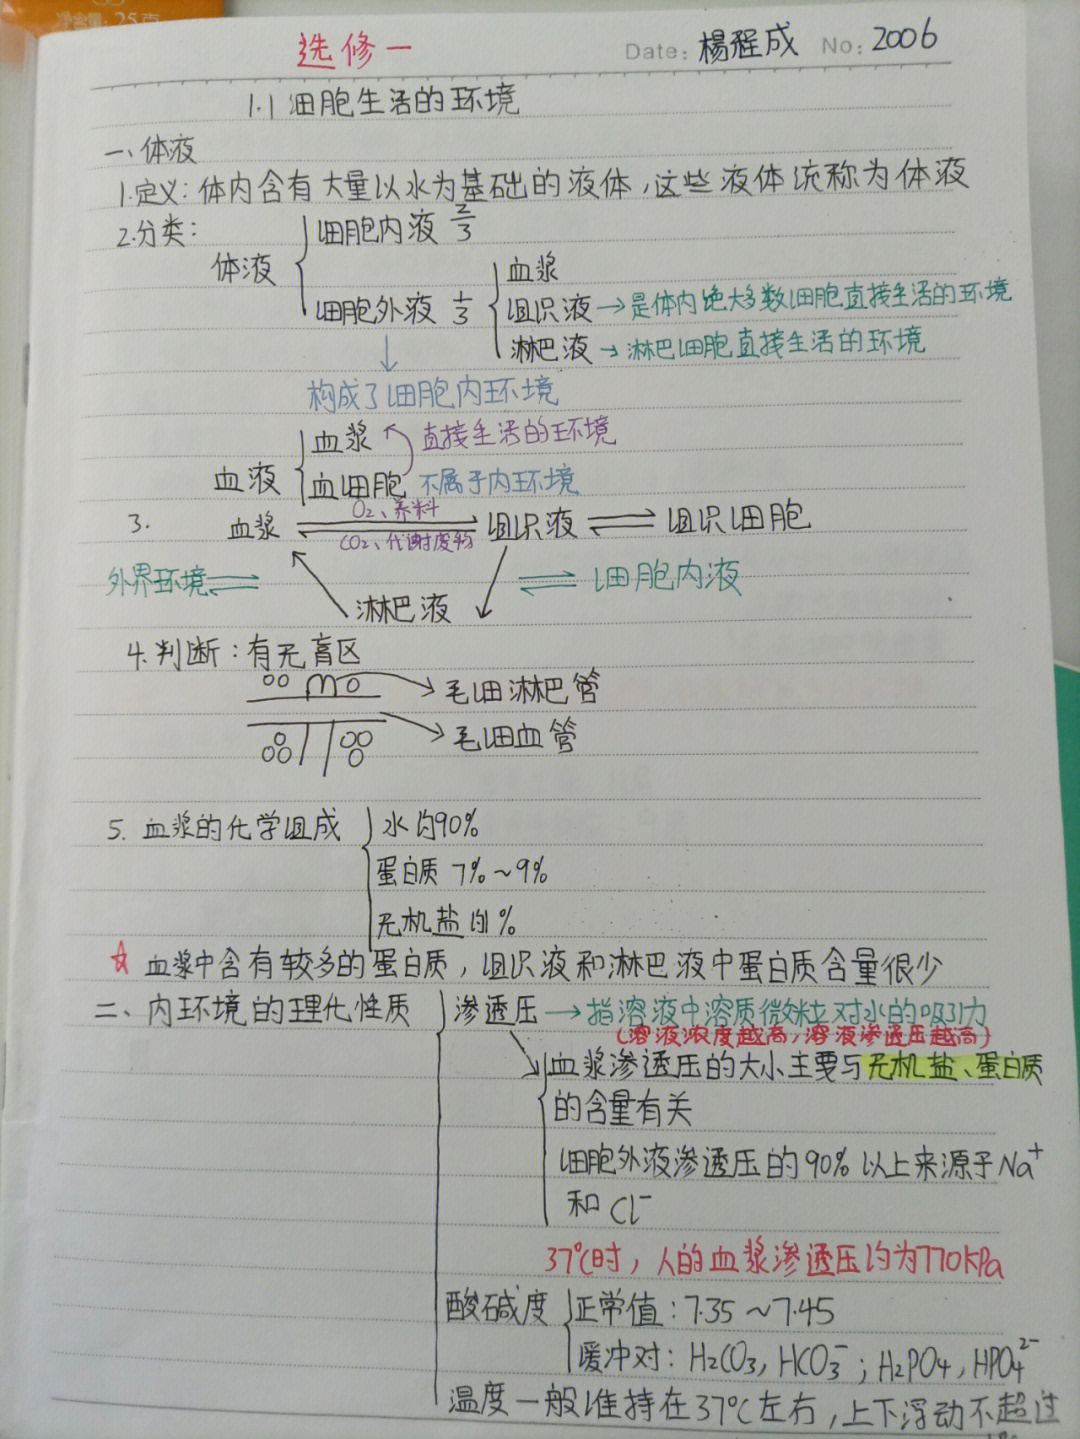 净含量:25克
选修一
Date: 楊程成 No: 2006
1.1 细胞生活的环境
一、体液
1.定义:体内含有大量以水为基础的液体,这些液体统称为体液
2.分类:
体液
细胞内液 2/3
细胞外液 1/3
血浆
组织液→是体内绝大多数细胞直接生活的环境
淋巴液→淋巴细胞直接生活的环境
构成了细胞内环境
血液
血浆 直接生活的环境
血细胞 不属于内环境
3. 血浆 O₂、养料 CO₂、代谢废物 组织液 ⇌ 组织细胞
外界环境⇌ ⇌细胞内液
淋巴液
4.判断:有无盲区
毛细淋巴管
毛细血管
5. 血浆的化学组成
水约90%
蛋白质 7%~9%
无机盐约1%
☆ 血浆中含有较多的蛋白质,组织液和淋巴液中蛋白质含量很少
二、内环境的理化性质
渗透压→指溶液中溶质微粒对水的吸引力
(溶液浓度越高,溶液渗透压越高)
血浆渗透压的大小主要与无机盐、蛋白质
的含量有关
细胞外液渗透压的90%以上来源于Na⁺
和Cl⁻
37℃时,人的血浆渗透压约为770kPa
酸碱度
正常值:7.35~7.45
缓冲对:H₂CO₃,HCO₃⁻;H₂PO₄,HPO₄²⁻
温度一般维持在37℃左右,上下浮动不超过